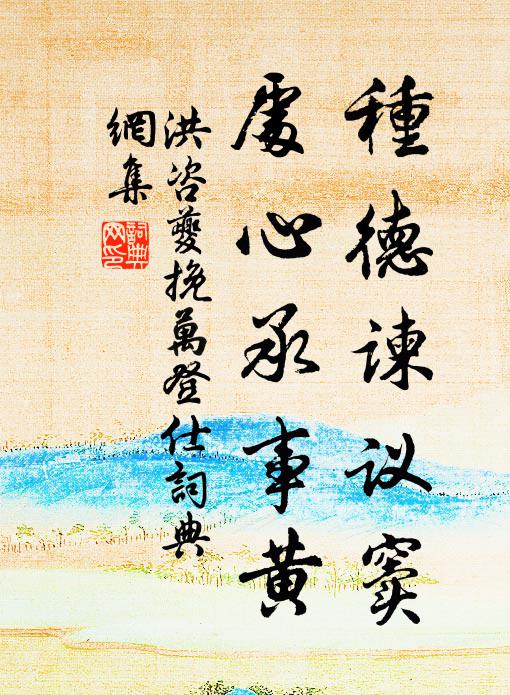 種德諫议竇
處心承事黃
洪咨夔挽萬登仕詞典
網集
詞典
网印